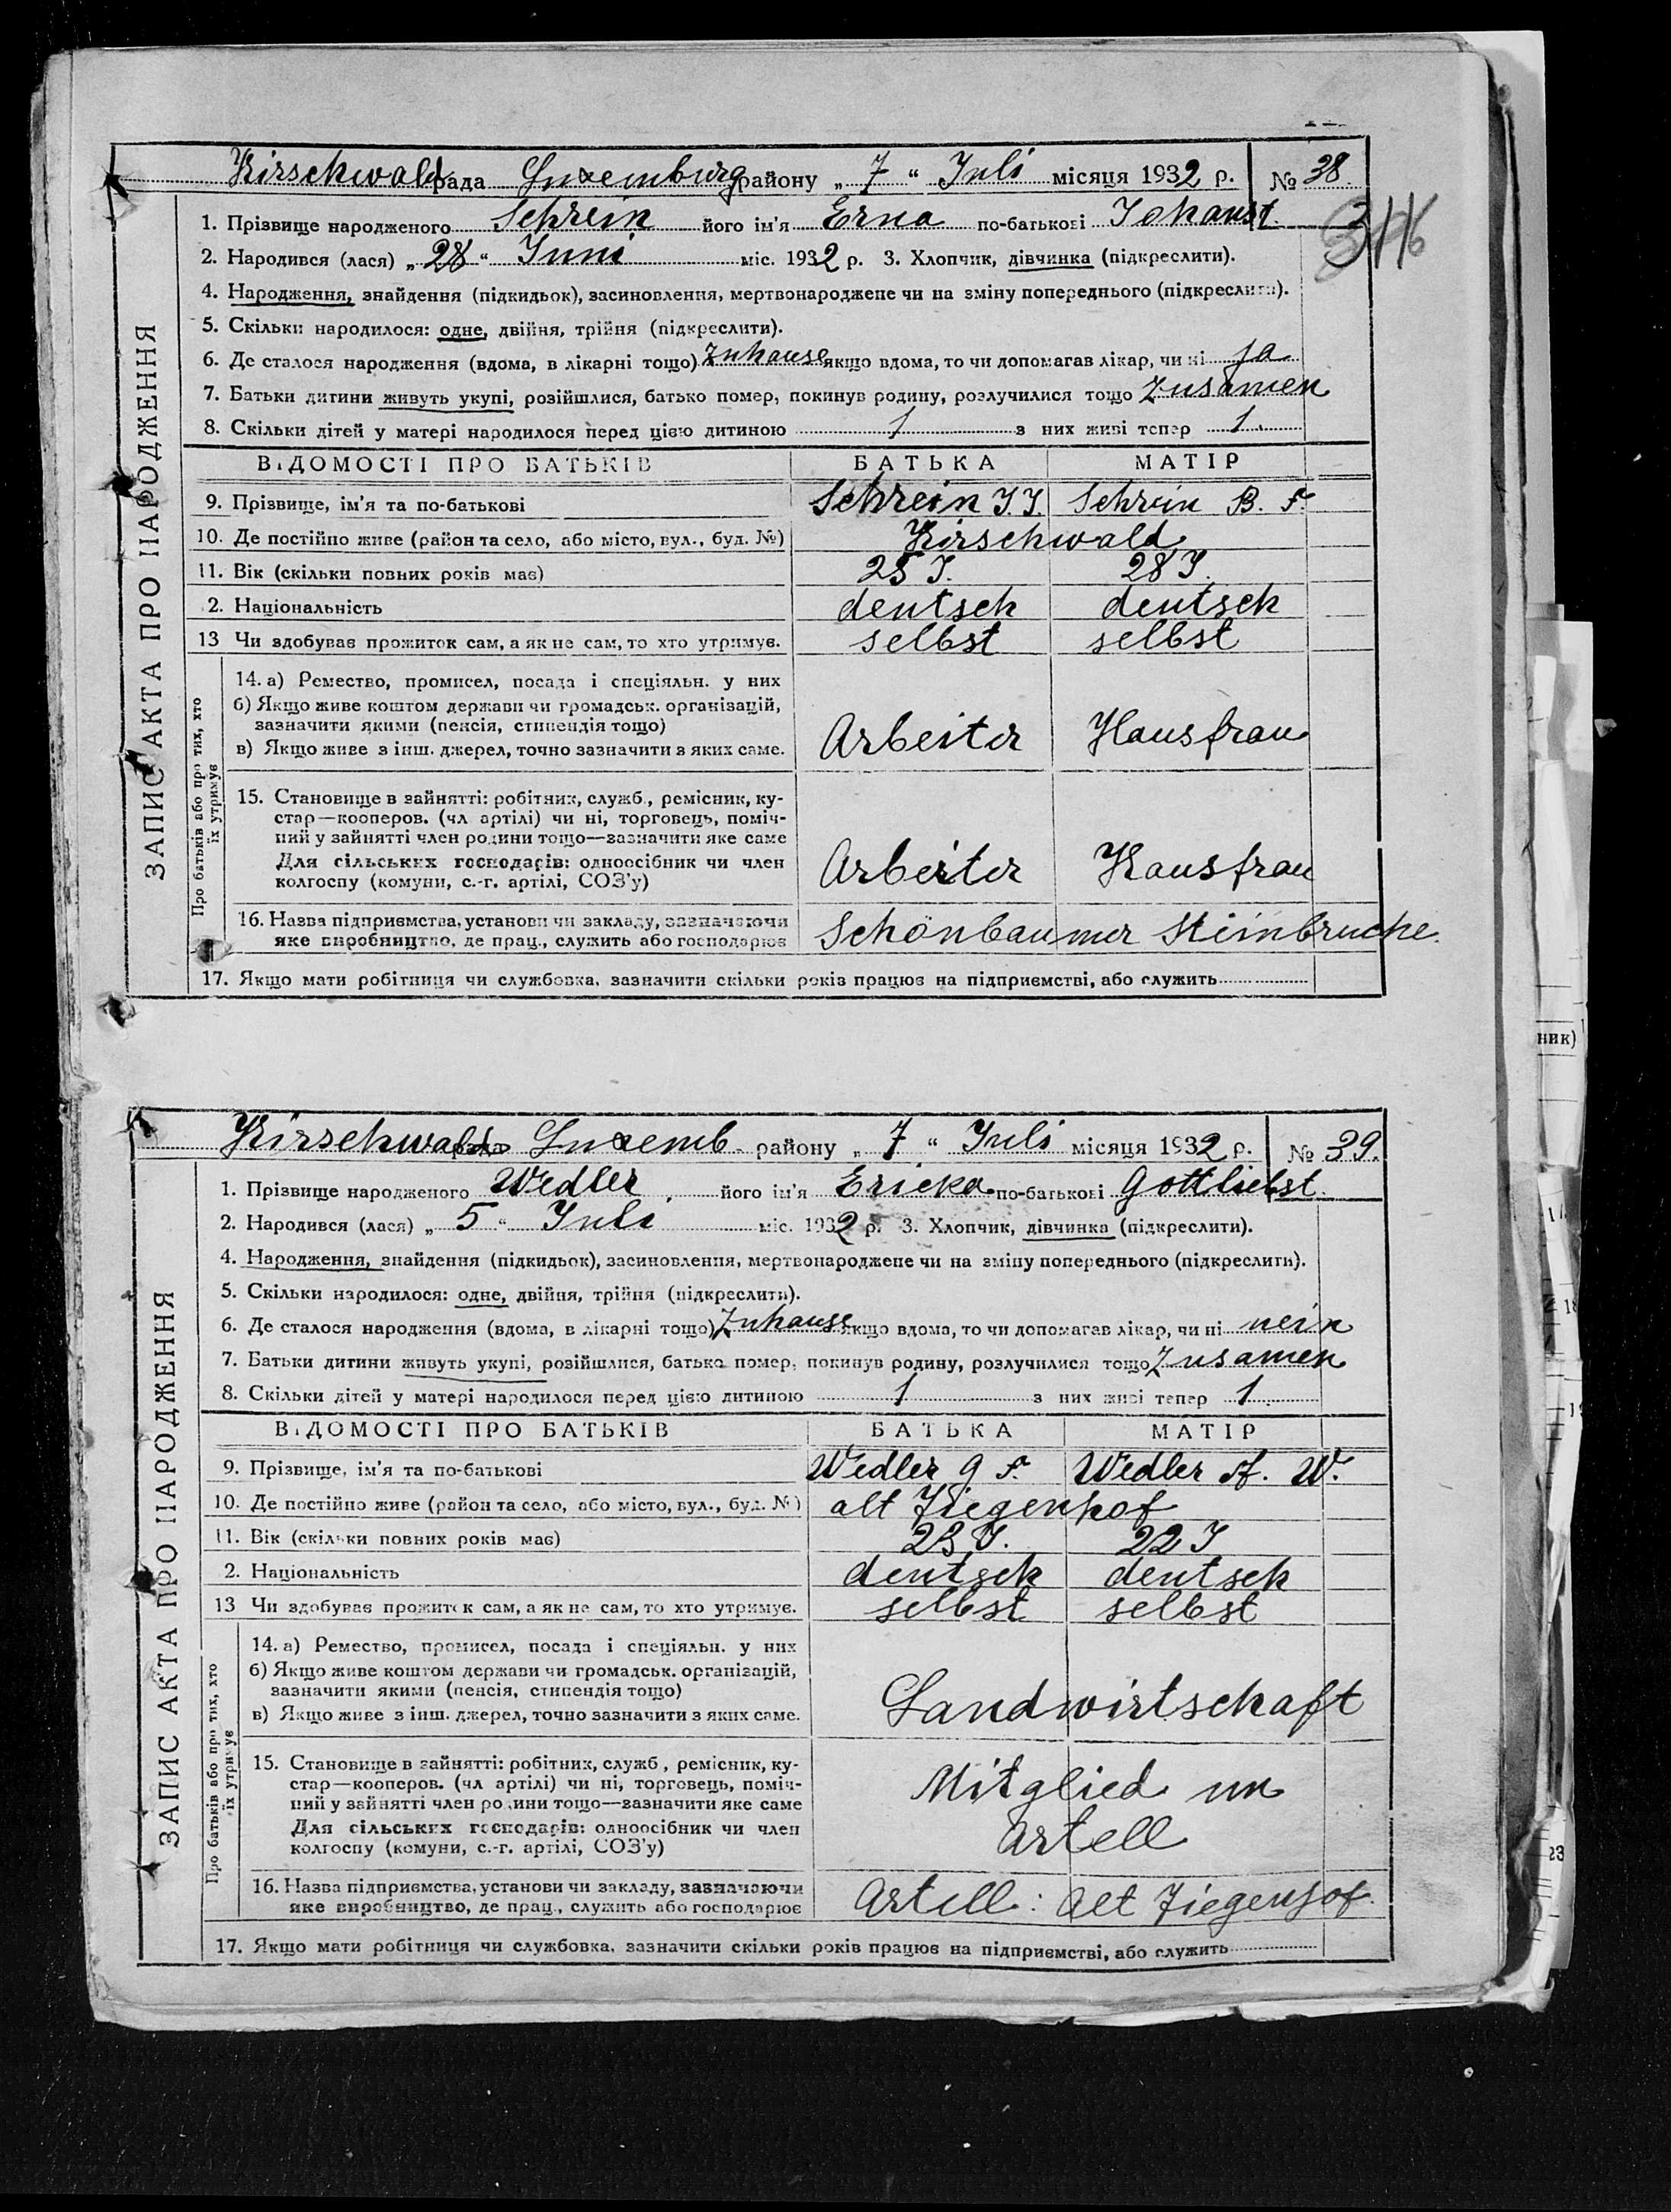 Kirschwald рада Luxemburg району „ 7 “ Juli місяця 1932 р. № 38.
1. Прізвище народженого Schrein його ім'я Erna по-батькові Johanst.
346
2. Народився (лася) „ 28 “ Juni міс. 1932 р. 3. Хлопчик, дівчинка (підкреслити).
4. Народження, знайдення (підкидьок), засиновлення, мертвонароджене чи на зміну попереднього (підкреслити).
5. Скільки народилося: одне, двійня, трійня (підкреслити).
6. Де сталося народження (вдома, в лікарні тощо) Zuhause якщо вдома, то чи допомагав лікар, чи ні ja
7. Батьки дитини живуть укупі, розійшлися, батько помер, покинув родину, розлучилися тощо Zusamen
8. Скільки дітей у матері народилося перед цією дитиною 1 з них живі тепер 1
ЗАПИС АКТА ПРО НАРОДЖЕННЯ
ВІДОМОСТІ ПРО БАТЬКІВ БАТЬКА МАТІР
9. Прізвище, ім'я та по-батькові Schrein J. J. Schrein B. F.
10. Де постійно живе (район та село, або місто, вул., буд. №) Kirschwald
11. Вік (скільки повних років має) 25 J. 28 J.
2. Національність deutsch deutsch
13 Чи здобуває прожиток сам, а як не сам, то хто утримує. selbst selbst
Про батьків або про тих, хто
їх утримує
14. а) Ремество, промисел, посада і спеціяльн. у них
б) Якщо живе коштом держави чи громадськ. організацій,
зазначити якими (пенсія, стипендія тощо)
в) Якщо живе з інш. джерел, точно зазначити з яких саме.
Arbeiter Hausfrau
15. Становище в зайнятті: робітник, служб., ремісник, ку-
стар—кооперов. (чл артілі) чи ні, торговець, поміч-
ний у зайнятті член родини тощо—зазначити яке саме
Для сільських господарів: одноосібник чи член
колгоспу (комуни, с.-г. артілі, СОЗ'у)
Arbeiter Hausfrau
16. Назва підприємства, установи чи закладу, зазначаючи
яке виробництво, де прац., служить або господарює
Schönbaumer Steinbruche.
17. Якщо мати робітниця чи службовка, зазначити скільки років працює на підприємстві, або служить
Kirschwald рада Luxemb. району „ 7 “ Juli місяця 1932 р. № 39.
1. Прізвище народженого Wedler його ім'я Ericka по-батькові Gottliebst.
2. Народився (лася) „ 5 “ Juli міс. 1932 р. 3. Хлопчик, дівчинка (підкреслити).
4. Народження, знайдення (підкидьок), засиновлення, мертвонароджене чи на зміну попереднього (підкреслити).
5. Скільки народилося: одне, двійня, трійня (підкреслити).
6. Де сталося народження (вдома, в лікарні тощо) Zuhause якщо вдома, то чи допомагав лікар, чи ні nein
7. Батьки дитини живуть укупі, розійшлися, батько помер, покинув родину, розлучилися тощо Zusamen
8. Скільки дітей у матері народилося перед цією дитиною 1 з них живі тепер 1
ЗАПИС АКТА ПРО НАРОДЖЕННЯ
ВІДОМОСТІ ПРО БАТЬКІВ БАТЬКА МАТІР
9. Прізвище, ім'я та по-батькові Wedler G F. Wedler A. W.
10. Де постійно живе (район та село, або місто, вул., буд. №) alt Ziegenhof
11. Вік (скільки повних років має) 23 J. 22 J
2. Національність deutsch deutsch
13 Чи здобуває прожиток сам, а як не сам, то хто утримує. selbst selbst
Про батьків або про тих, хто
їх утримує
14. а) Ремество, промисел, посада і спеціяльн. у них
б) Якщо живе коштом держави чи громадськ. організацій,
зазначити якими (пенсія, стипендія тощо)
в) Якщо живе з інш. джерел, точно зазначити з яких саме.
Landwirtschaft
15. Становище в зайнятті: робітник, служб., ремісник, ку-
стар—кооперов. (чл артілі) чи ні, торговець, поміч-
ний у зайнятті член родини тощо—зазначити яке саме
Для сільських господарів: одноосібник чи член
колгоспу (комуни, с.-г. артілі, СОЗ'у)
Mitglied im
Artell
16. Назва підприємства, установи чи закладу, зазначаючи
яке виробництво, де прац., служить або господарює
Artell: Alt Ziegenhof.
17. Якщо мати робітниця чи службовка, зазначити скільки років працює на підприємстві, або служить
ник)
23